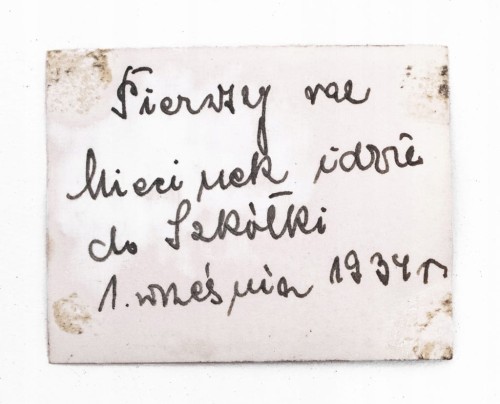 Pierwszy raz
Miecinek idzie
do Szkółki
1. września 1934 r